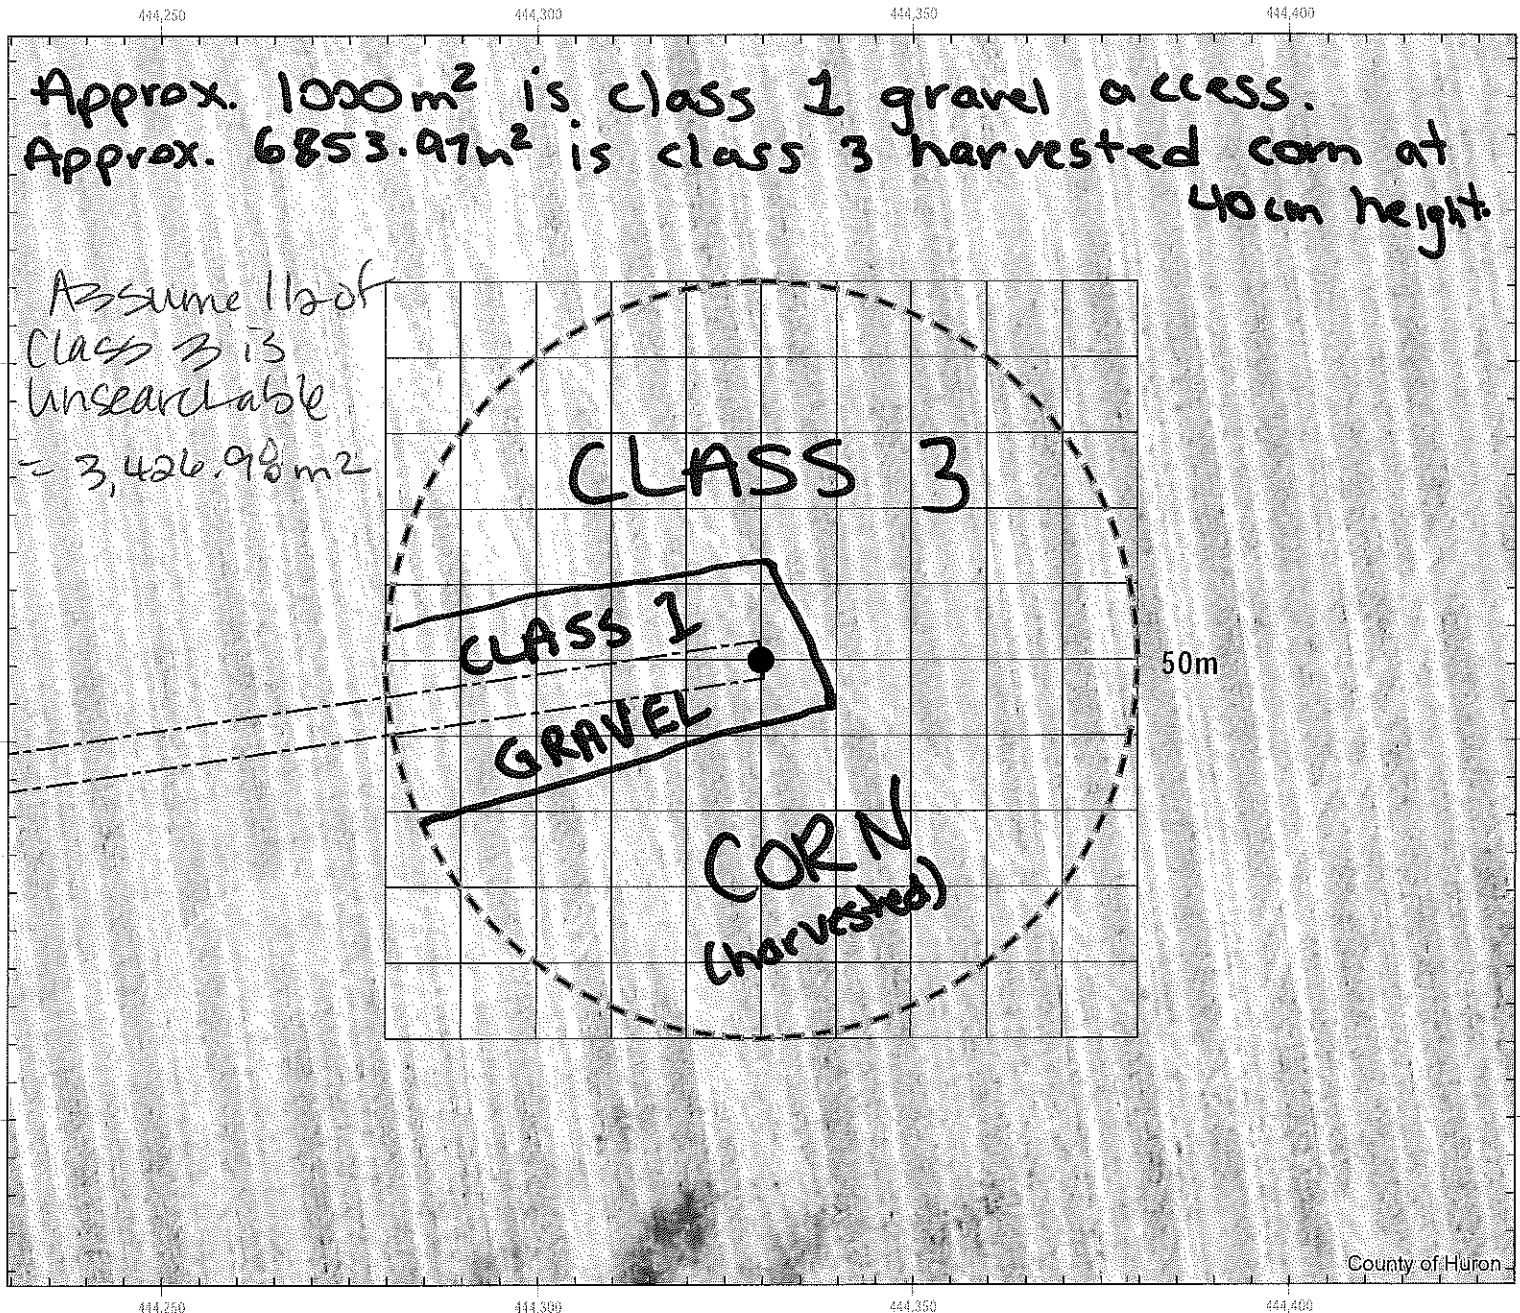 444,250 444,300 444,350 444,400
Approx. 1000m² is class 1 gravel access.
Approx. 6853.97m² is class 3 harvested corn at
40cm height.
Assume 1/2 of
Class 3 is
Unsearchable
= 3,426.98m2
CLASS 3
CLASS 1
50m
GRAVEL
CORN
(harvested)
County of Huron
444,250 444,300 444,350 444,400